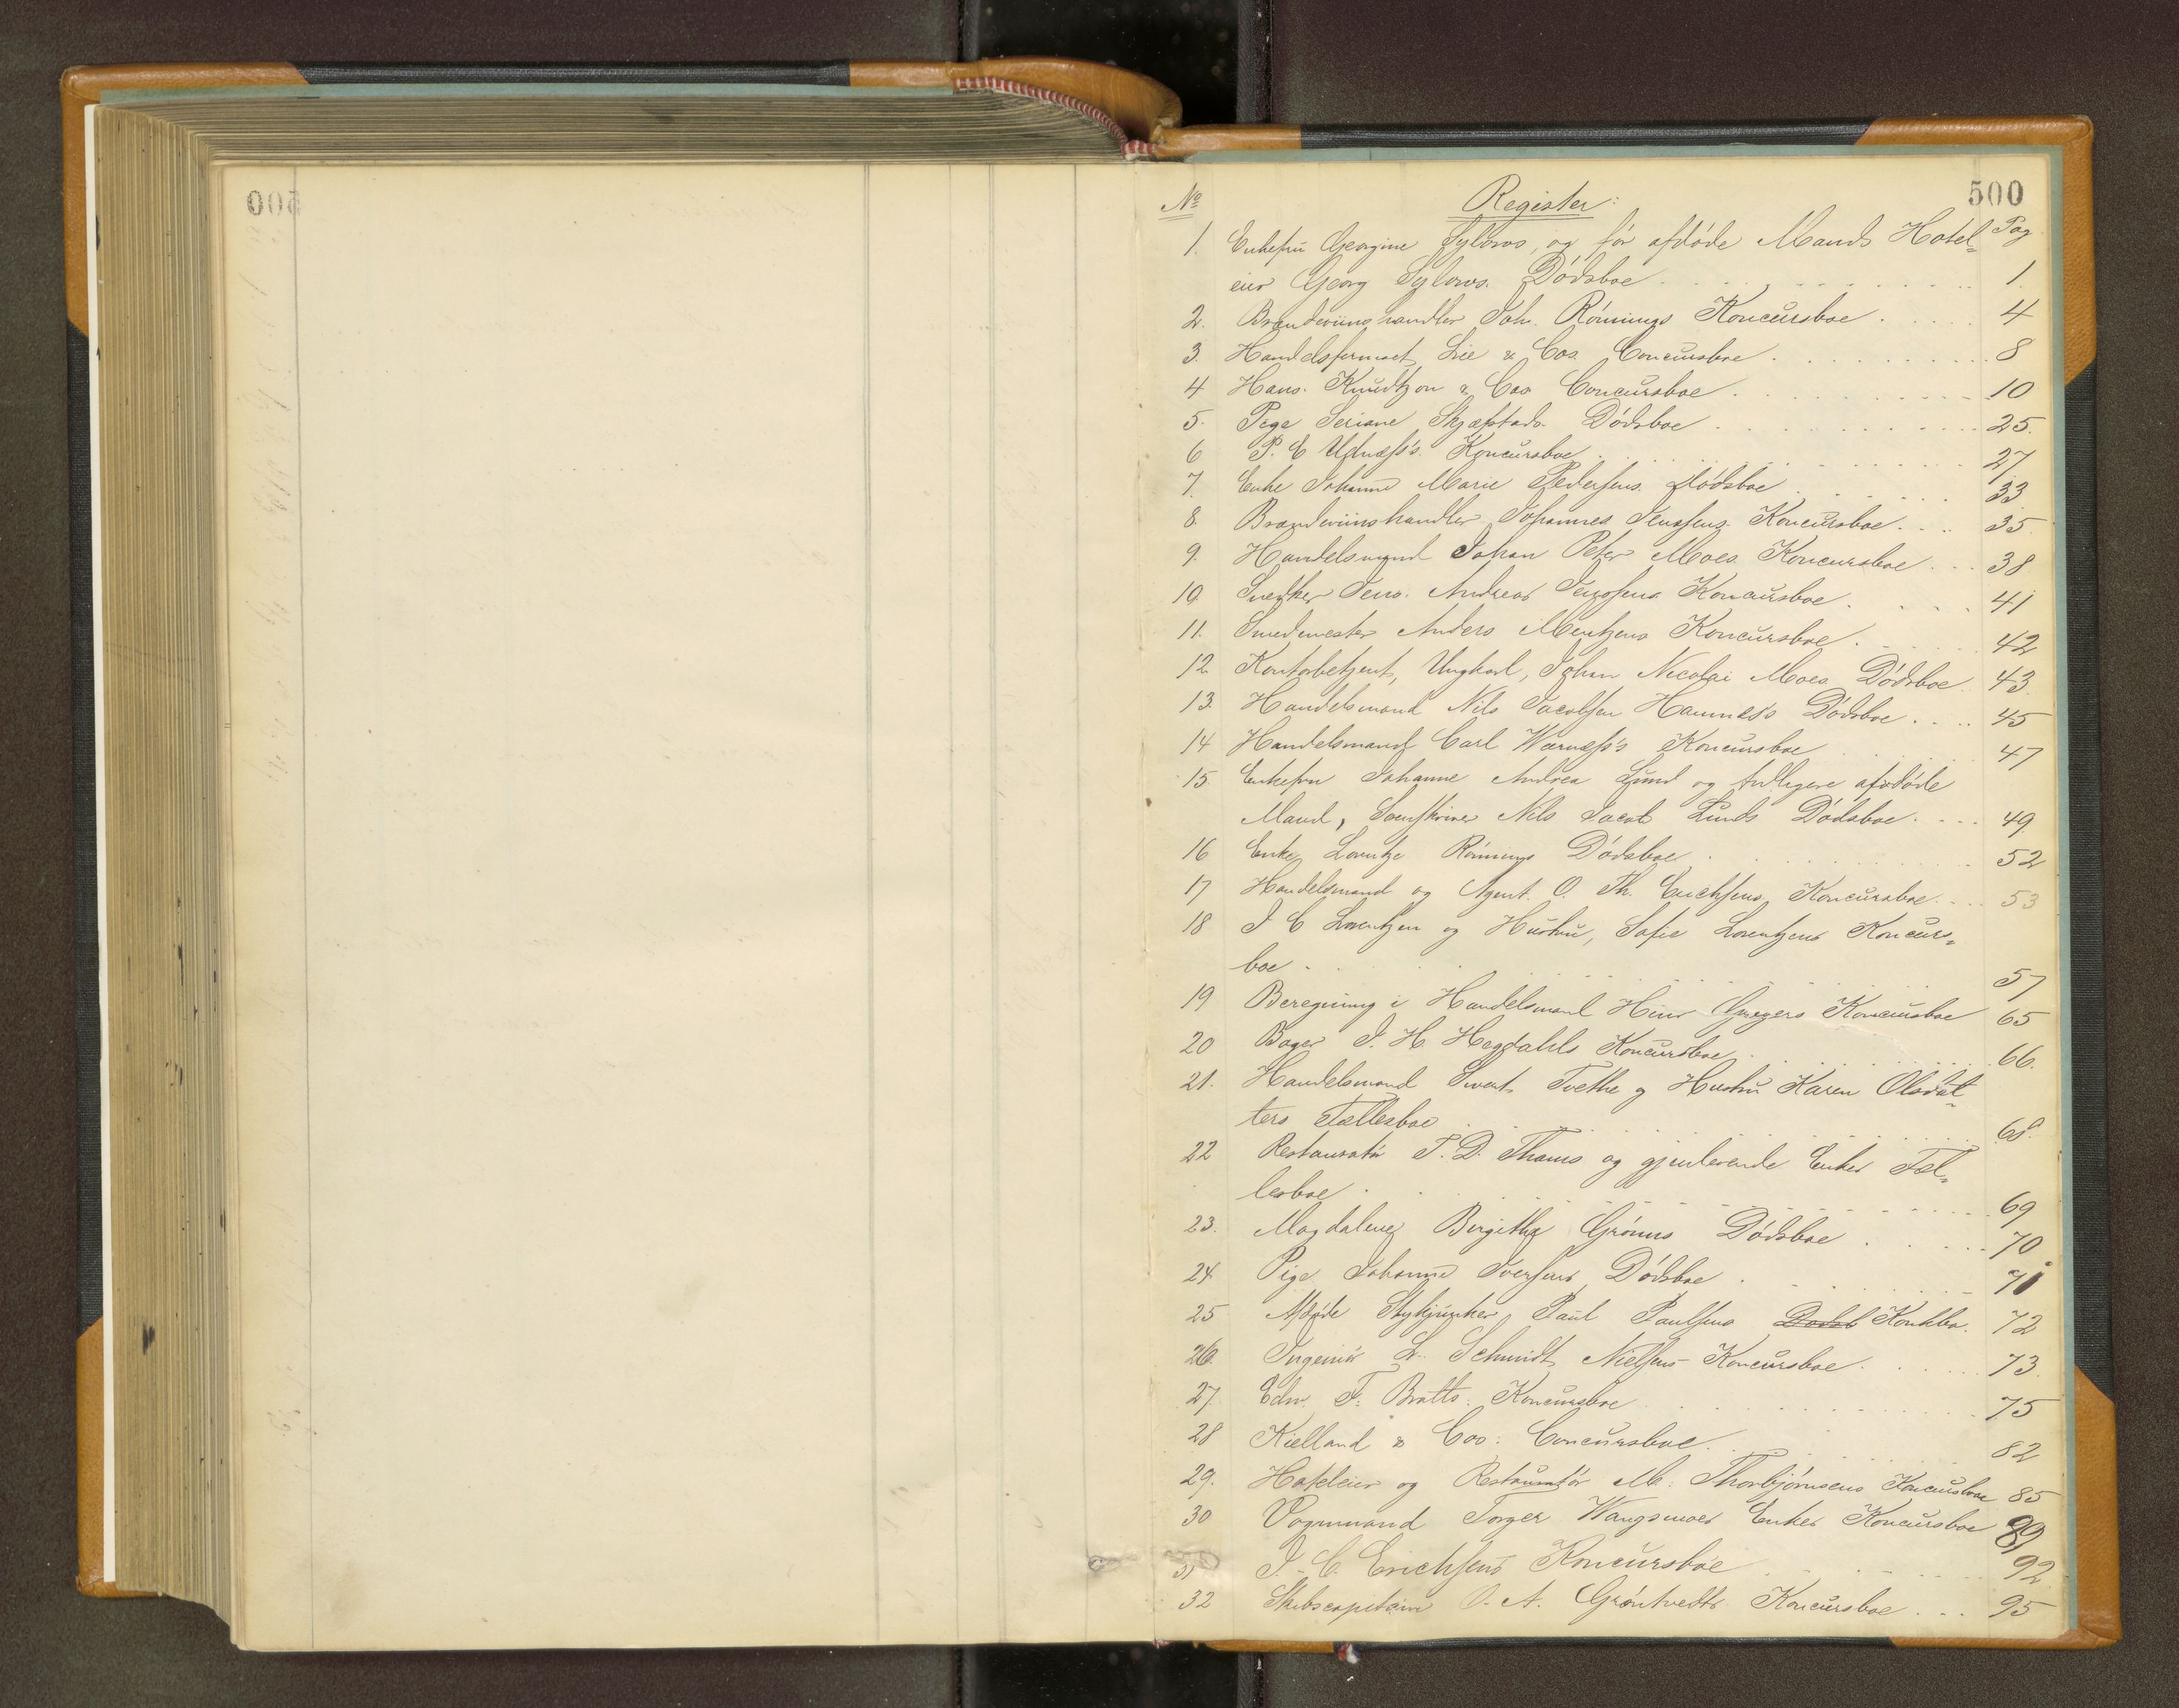 500
No
Register:
Pag
1. Enkefru Georgine Sylows, og før afdøde Mands Hotel=
eier Georg Sylows. Dødsboe 1.
2. Brændeviinshandler Joh. Rónnings Koncursboe 4
3. Handelsfirmaet Lie & Cos. Concursboe 8
4 Hans Knudtzon & Cos Concursboe 10
5. Pige Seriane Skjæfstads Dødsboe 25.
6 P. E Udnæss's Koncursboe 27
7. Enke Johanne Marie Pedersens Dødsboe 33
8. Brændeviinshandler Johannes Jenssens Koncursboe 35
9. Handelsmand Johan Peter Moes Koncursboe 38
10 Snedker Jens Andreas Jenssens Koncursboe 41
11. Smedmester Anders Mentzens Koncursboe 42
12 Kontorbetjent, Ungkarl, Johan Nicolai Moes Dødsboe 43.
13. Handelsmand Nils Jacobsen Hamnes's Dødsboe 45
14 Handelsmand Carl Wærnæss's Koncursboe 47
15. Enkefru Johanne Andrea Lund og tidligere afdøde
Mand, Nils Jacob Lunds Dødsboe 49
16 Enke Lorentze Rónnings Dødsboe 52
17 Handelsmand og Agent O. Th. Erichsens Koncursboe 53
18 J C Lorentzen og Hustru, Sofie Lorentzens Koncurs=
boe 57
19 Beregning i Handelsmand Hinr Koncursboe 65
20 Bager J. H. Hegdahls Koncursboe 66.
21. Handelsmand Sivert Tvethe og Hustru Karen Olsdat=
ters Fællesboe 68.
22 Restauratør T. D. Thams og gjenlevende Enkes Fæl=
lesboe 69
23. Magdalene Birgitha Grønns Dødsboe 70
24 Pige Johanne Iversens Dødsboe 71
25 Afdøde Stykjunker Paul Paulsens Dødsb Konkbo. 72
26. Ingeniør L. Schmidt Nielsens Koncursboe 73.
27 Edw. F. Bratts Koncursboe 75
28 Kielland & Cos. Concursboe 82
29. Hoteleier og Restauratør M. Thorbjørnsens Koncursboe 85
30 Vognmand Torger Wangsmoes Enkes Koncursboe 89
31 J. C. Erichsens Koncursboe 92
32 Skibscapitain O. A. Grøntvedts Koncursboe 95